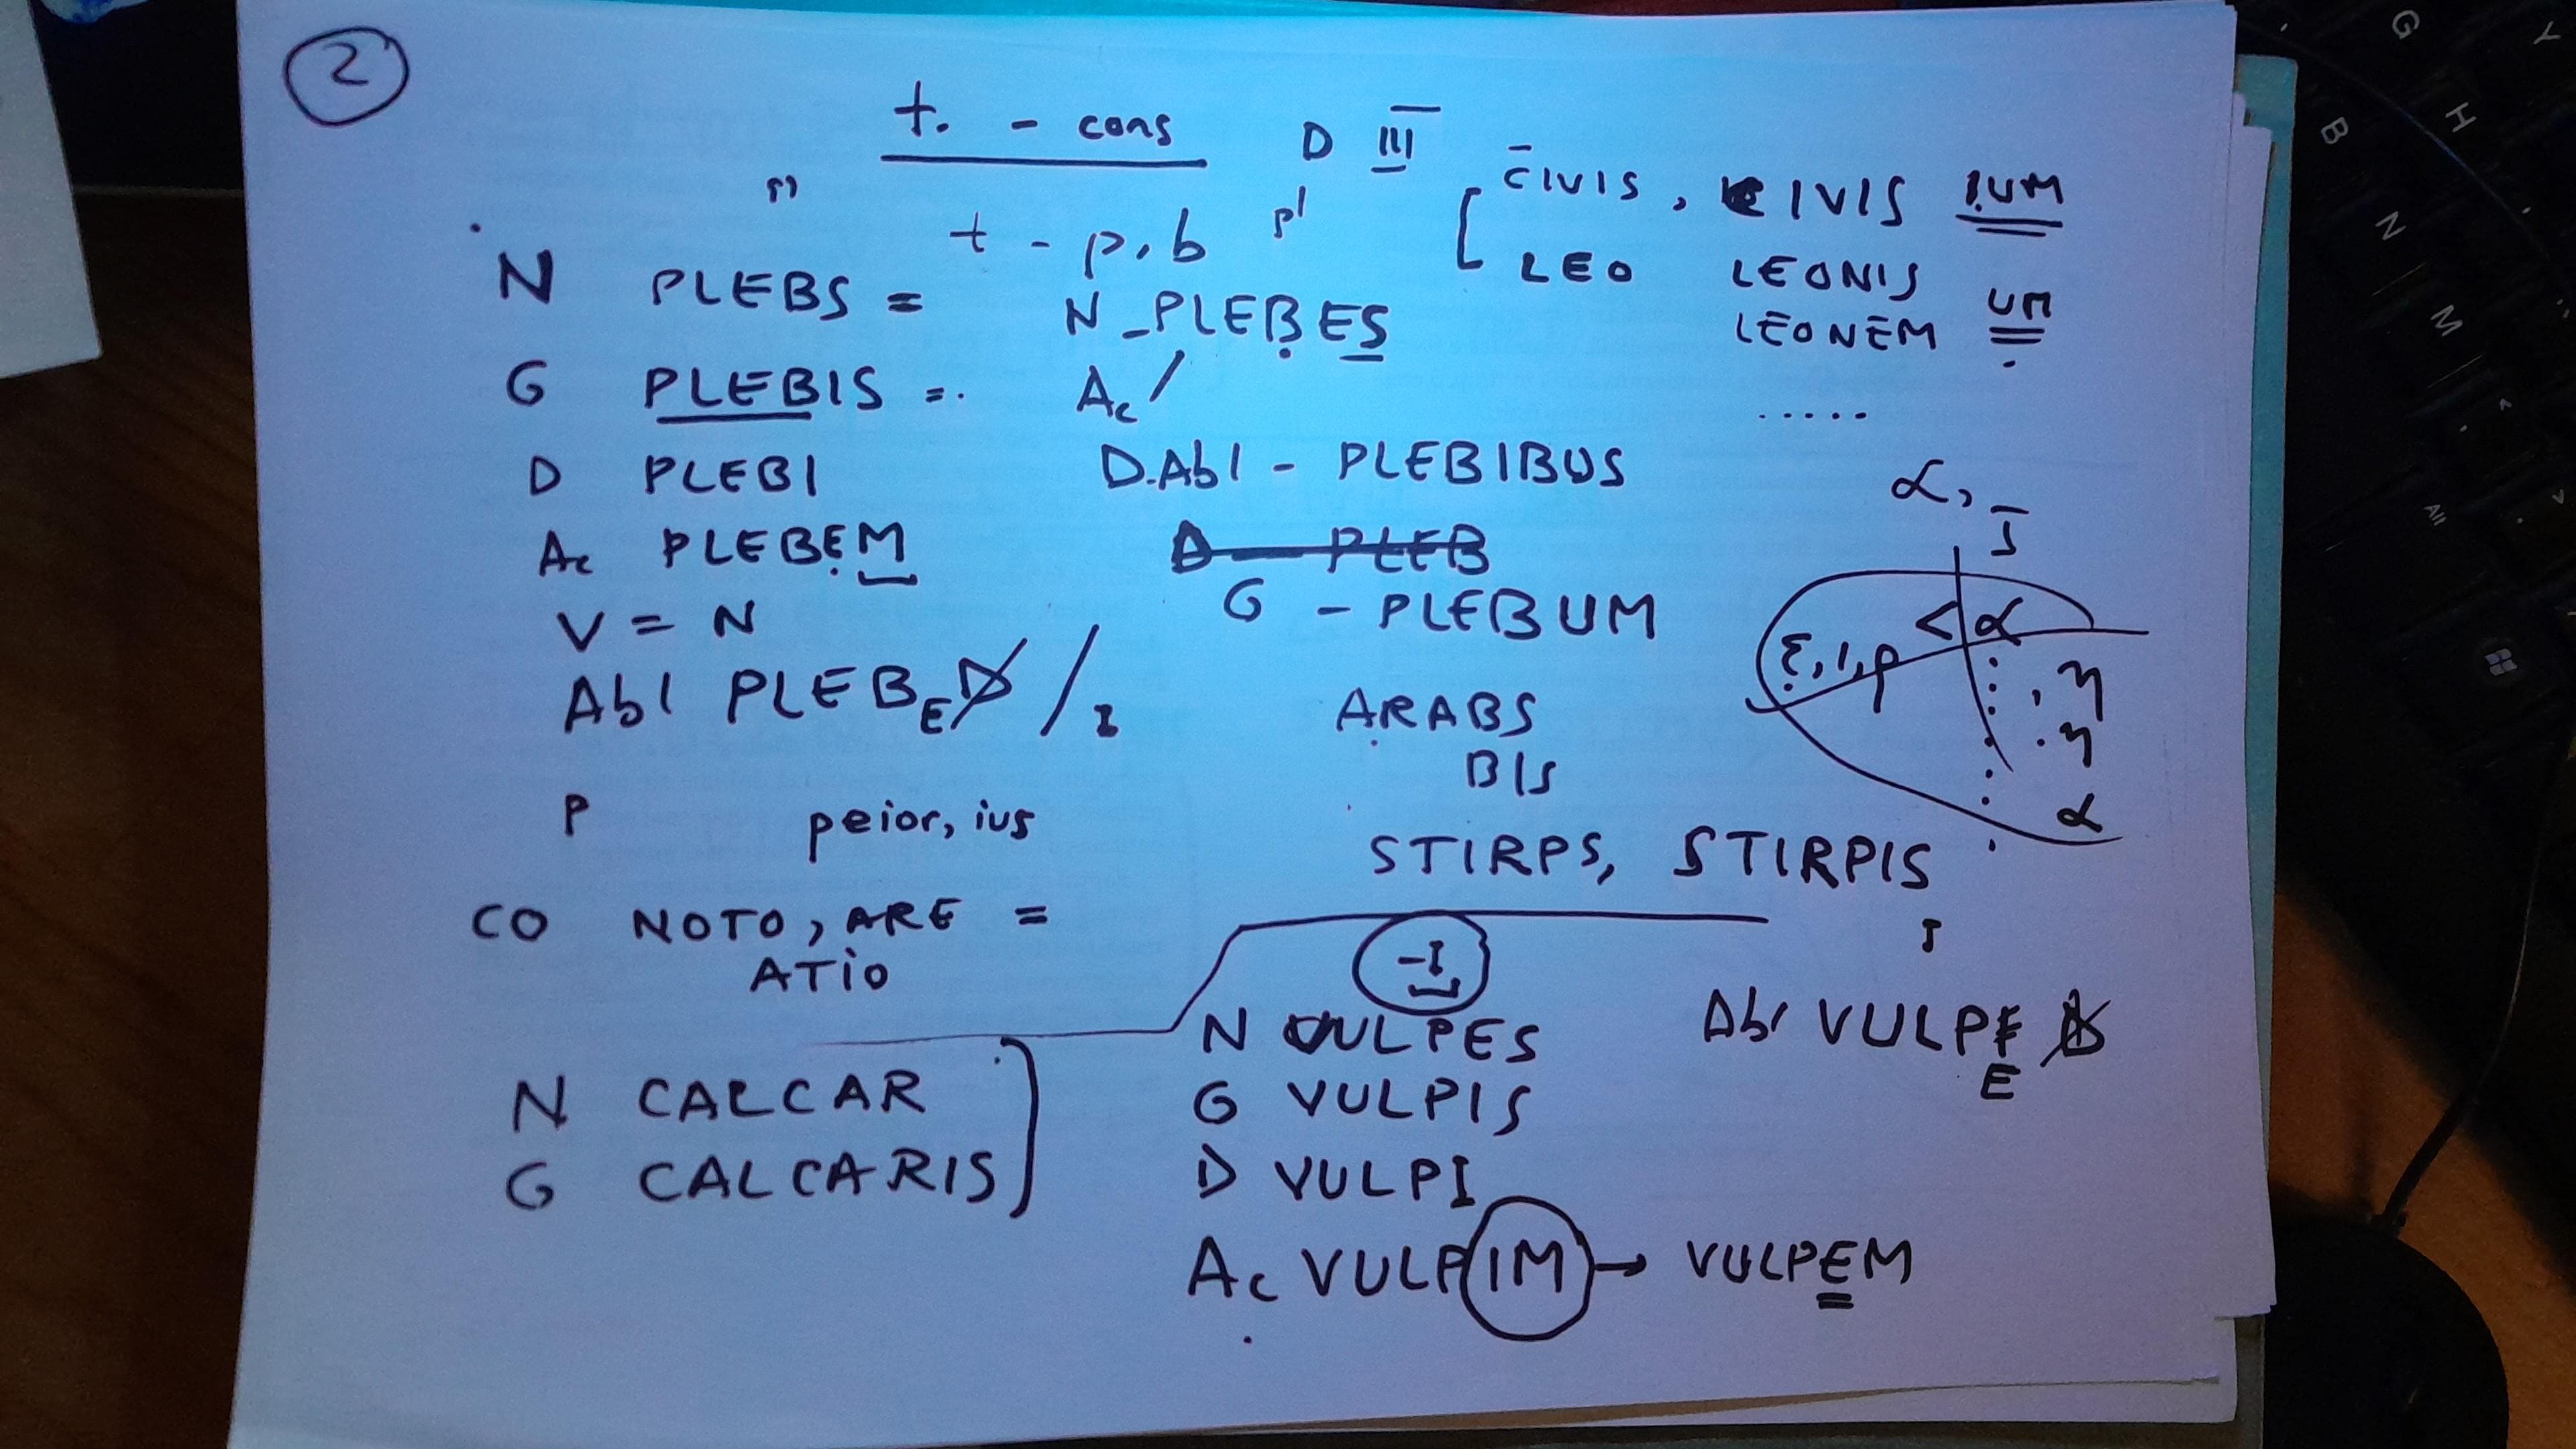 2
t. - cons D III
t - p, b pl
CIVIS, CIVIS IUM
LEO LEONIS UM
LEONEM
.....
N PLEBS = N - PLEBES
G PLEBIS = Ac /
D PLEBI D.Abl - PLEBIBUS
Ac PLEBEM D — PLEB
V = N G - PLEBUM
Abl PLEBED / I
α, J
< α
ε, ι, ρ
, η
. η
α
ARABS
BIS
P peior, ius
STIRPS, STIRPIS
CO NOTO, ARE =
ATIO
-I
N VULPES Abl VULPE D
E
G VULPIS
D VULPI
Ac VULPIM → VULPEM
N CALCAR
G CALCARIS
G
Y
B
H
N
M
All